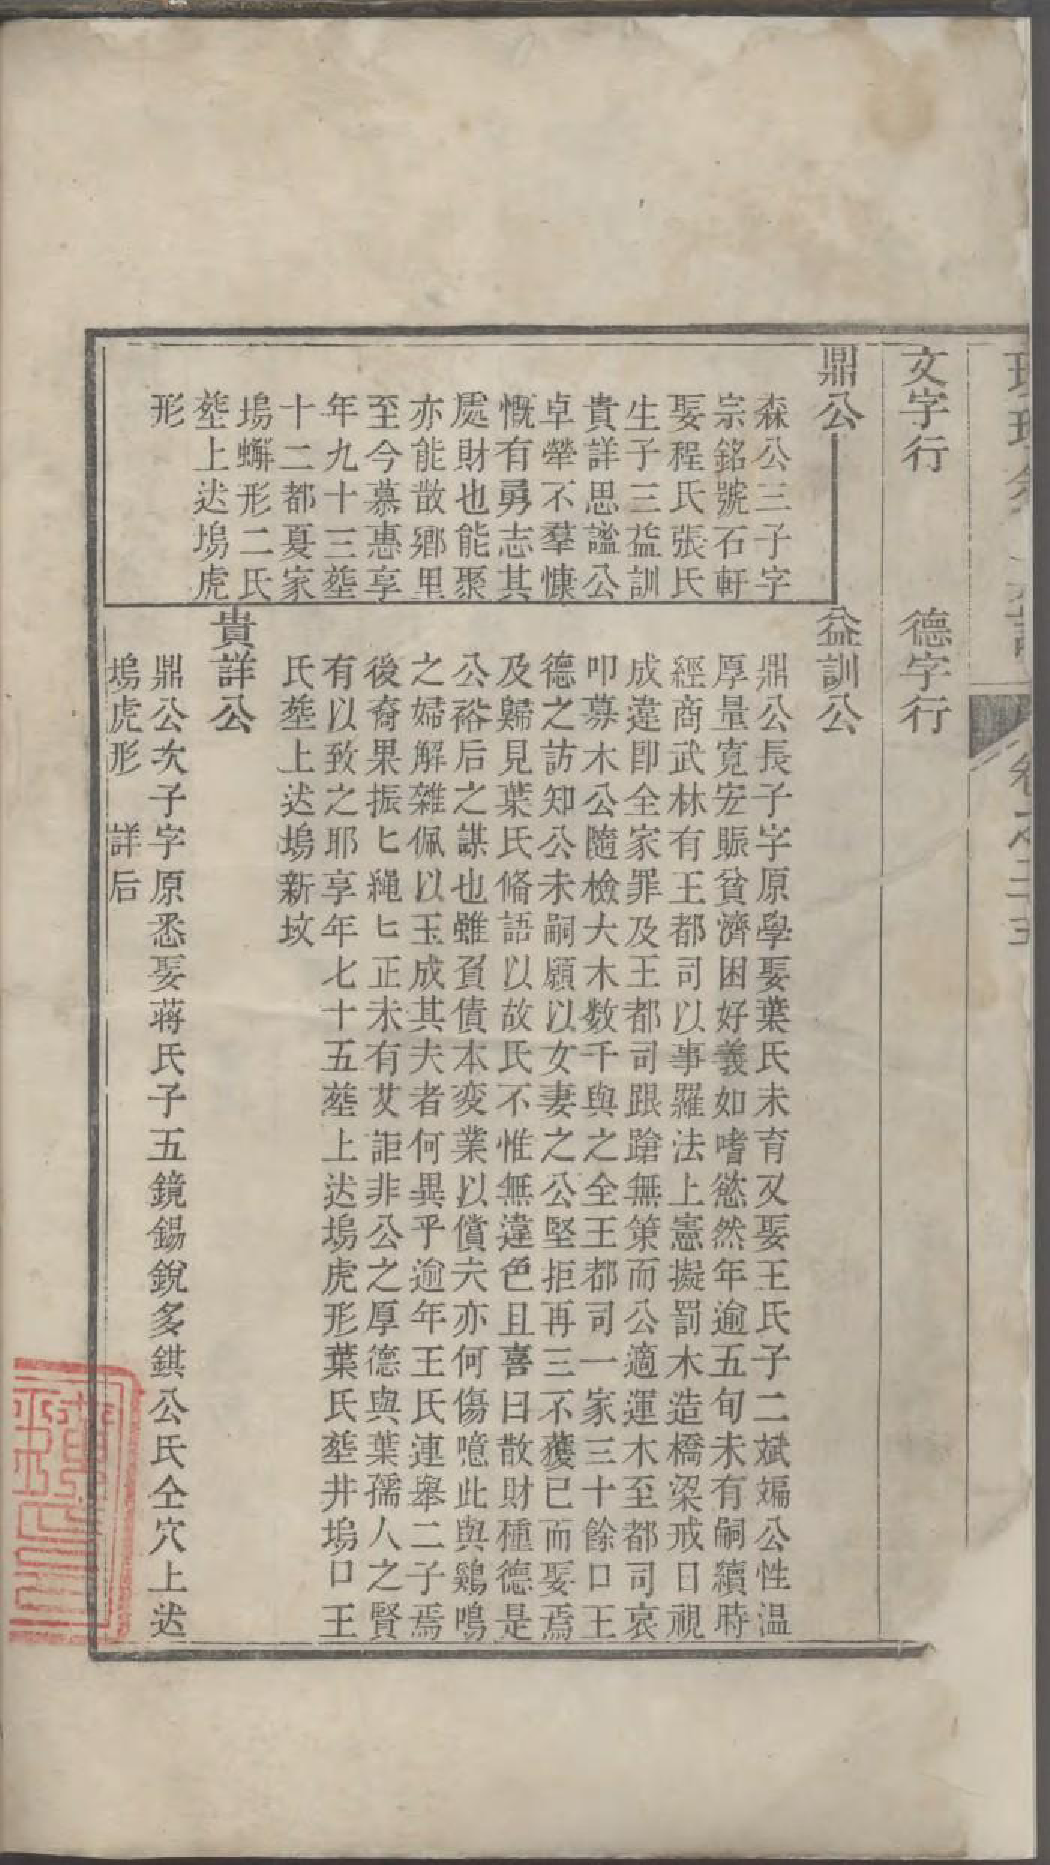 文字行
德字行
鼎公
森公三子字
宗銘號石軒
娶程氏張氏
生子三益訓
貴詳思謐公
卓犖不羣慷
慨有勇志其
處財也能聚
亦能散鄉里
至今慕惠享
年九十三塟
十二都夏家
塢蠏形二氏
塟上迏塢虎
形
益訓公
鼎公長子字原學娶葉氏未育又娶王氏子二斌煸公性温
厚量寛宏賑貧濟困好義如嗜慾然年逾五旬未有嗣續時
經商武林有王都司以事羅法上憲擬罰木造橋梁戒日視
成違卽全家罪及王都司踉蹌無策而公適運木至都司哀
叩募木公隨檢大木数千與之全王都司一家三十餘口王
德之訪知公未嗣願以女妻之公堅拒再三不獲已而娶焉
及歸見葉氏俻語以故氏不惟無違色且喜曰散財種德是
公裕后之謀也雖負債本変業以償夫亦何傷噫此與鷄鳴
之婦解雜佩以玉成其夫者何異乎逾年王氏連舉二子焉
後裔果振匕繩匕正未有艾詎非公之厚德與葉孺人之賢
有以致之耶享年七十五塟上迏塢虎形葉氏塟井塢口王
氏塟上迏塢新坟
貴詳公
鼎公次子字原悉娶蒋氏子五鏡錫銳多錤公氏仝穴上迏
塢虎形　詳后